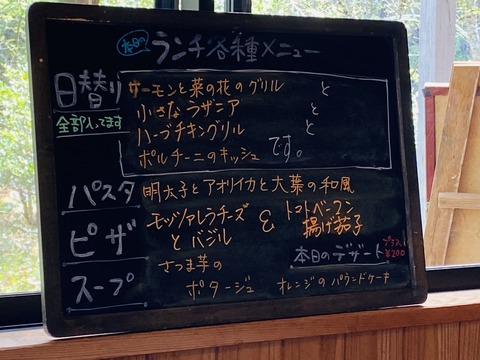 本日の
ランチ各種メニュー
日替り
全部入ってます
サーモンと菜の花のグリル と
小さなラザニア と
ハーブチキングリル と
ポルチーニのキッシュ です。
パスタ
明太子とアオリイカと大葉の和風
ピザ
モッツァレラチーズ
とバジル
&
トマトベーコン
揚げ茄子
スープ
さつま芋の
ポタージュ
本日のデザート
プラス
¥200
オレンジのパウンドケーキ